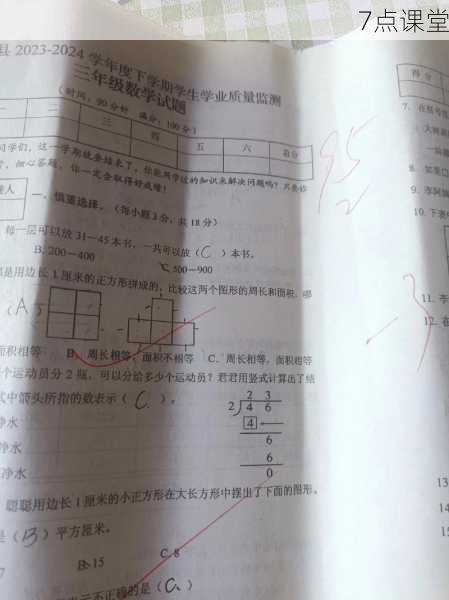 7点课堂
县 2023-2024 学年度下学期学生学业质量监测
三年级数学试题
（时间：90分钟 满分：100分）
二 三 四 五 六 总分
同学们，这一学期就要结束了，你能用学过的知识来解决问题吗？只要你
细心答题，你一定会取得好成绩！
一、慎重选择。（每小题3分，共18分）
每一层可以放 31—45 本书，一共可以放（C）本书。
B. 200—400
C. 500—900
都是用边长 1 厘米的正方形拼成的，比较这两个图形的周长和面积，哪
（A）
面积相等 B、周长相等，面积不相等 C、周长相等，面积相等
个运动员分 2 瓶，可以分给多少个运动员？君君用竖式计算出了结
式中箭头所指的数表示（C）。
净水
净水
净水
2 3
2 4 6
4
6
6
0
聪聪用边长 1 厘米的小正方形在大长方形中摆出了下面的图形。
是（B）平方厘米。
B. 15
C. 8
表示不正确的是（C）
95
-3
得分
7.
8.
9.
10. 下表
11.
12.
13
14
15